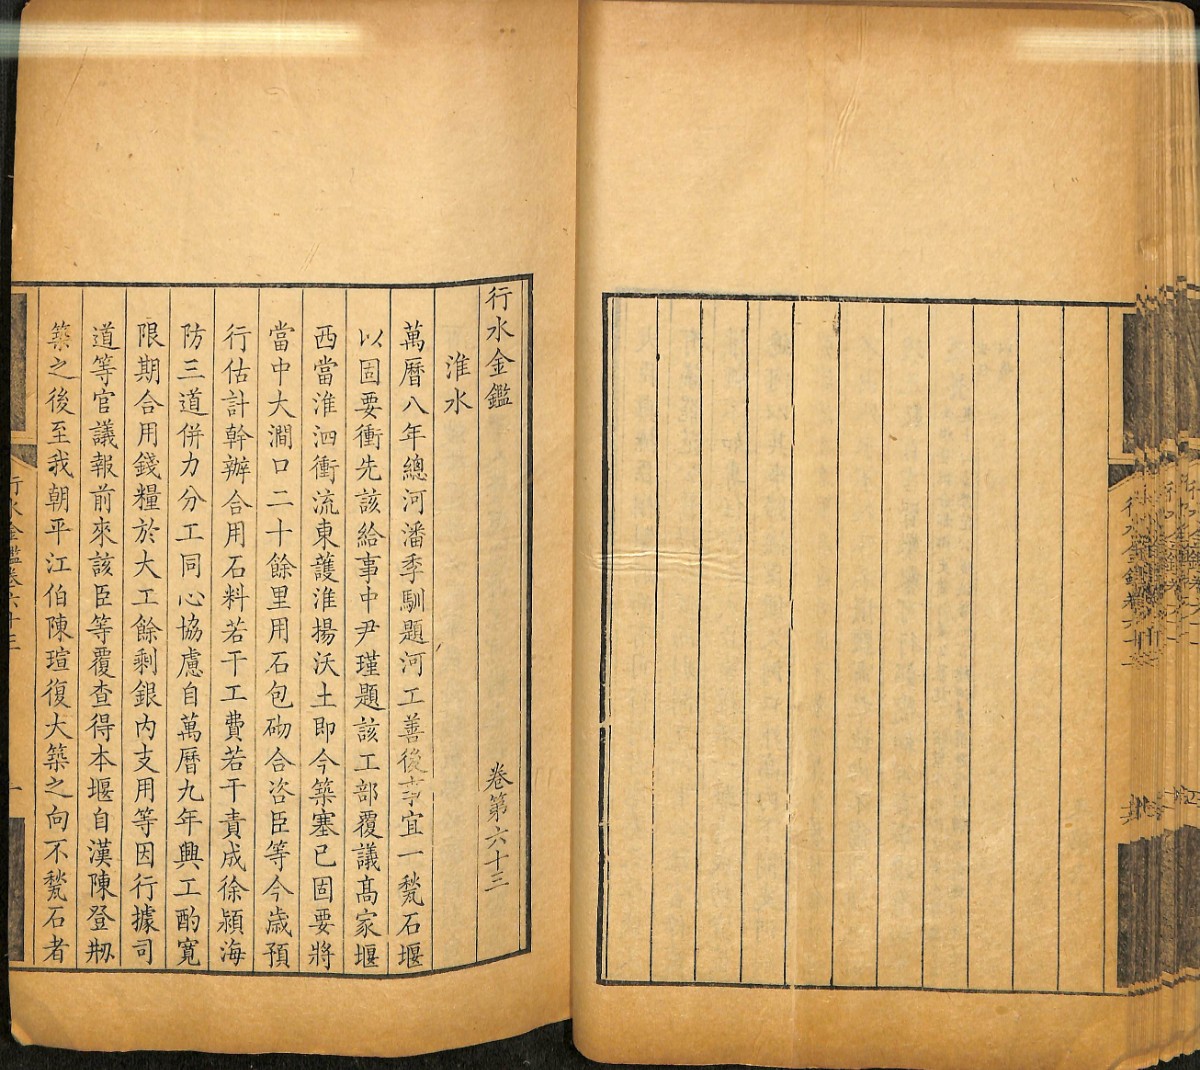 行水金鑑 卷第六十三
淮水
萬曆八年總河潘季馴題河工善後事宜一甃石堰
以固要衝先該給事中尹瑾題該工部覆議髙家堰
西當淮泗衝流東護淮揚沃土即今築塞已固要將
當中大澗口二十餘里用石包砌合咨臣等今歲預
行估計幹辦合用石料若干工費若干責成徐潁海
防三道併力分工同心協慮自萬曆九年興工酌寬
限期合用錢糧於大工餘剩銀内支用等因行據司
道等官議報前來該臣等覆查得本堰自漢陳登刱
築之後至我朝平江伯陳瑄復大築之向不甃石者
行水金鑑卷六十三 一